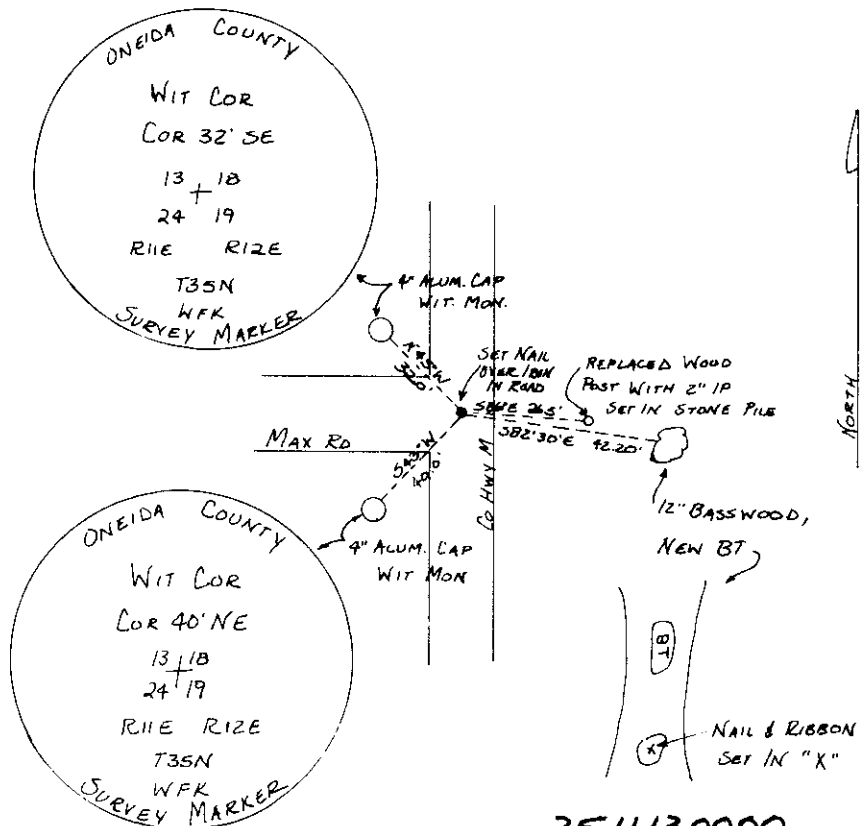 ONEIDA COUNTY
WIT COR
COR 32' SE
13 18
24 19
R11E R12E
T35N
WFK
SURVEY MARKER
4" ALUM. CAP
WIT. MON.
N45°W
32.0'
SET NAIL
OVER IRON
IN ROAD
REPLACED WOOD
POST WITH 2" IP
SET IN STONE PILE
26.5'
S82°30'E 42.20'
NORTH
MAX RD
S43°W
40.0'
CO HWY M
12" BASSWOOD,
NEW BT
ONEIDA COUNTY
WIT COR
COR 40' NE
13 18
24 19
R11E R12E
T35N
WFK
SURVEY MARKER
4" ALUM. CAP
WIT MON
BT
X
NAIL & RIBBON
SET IN "X"